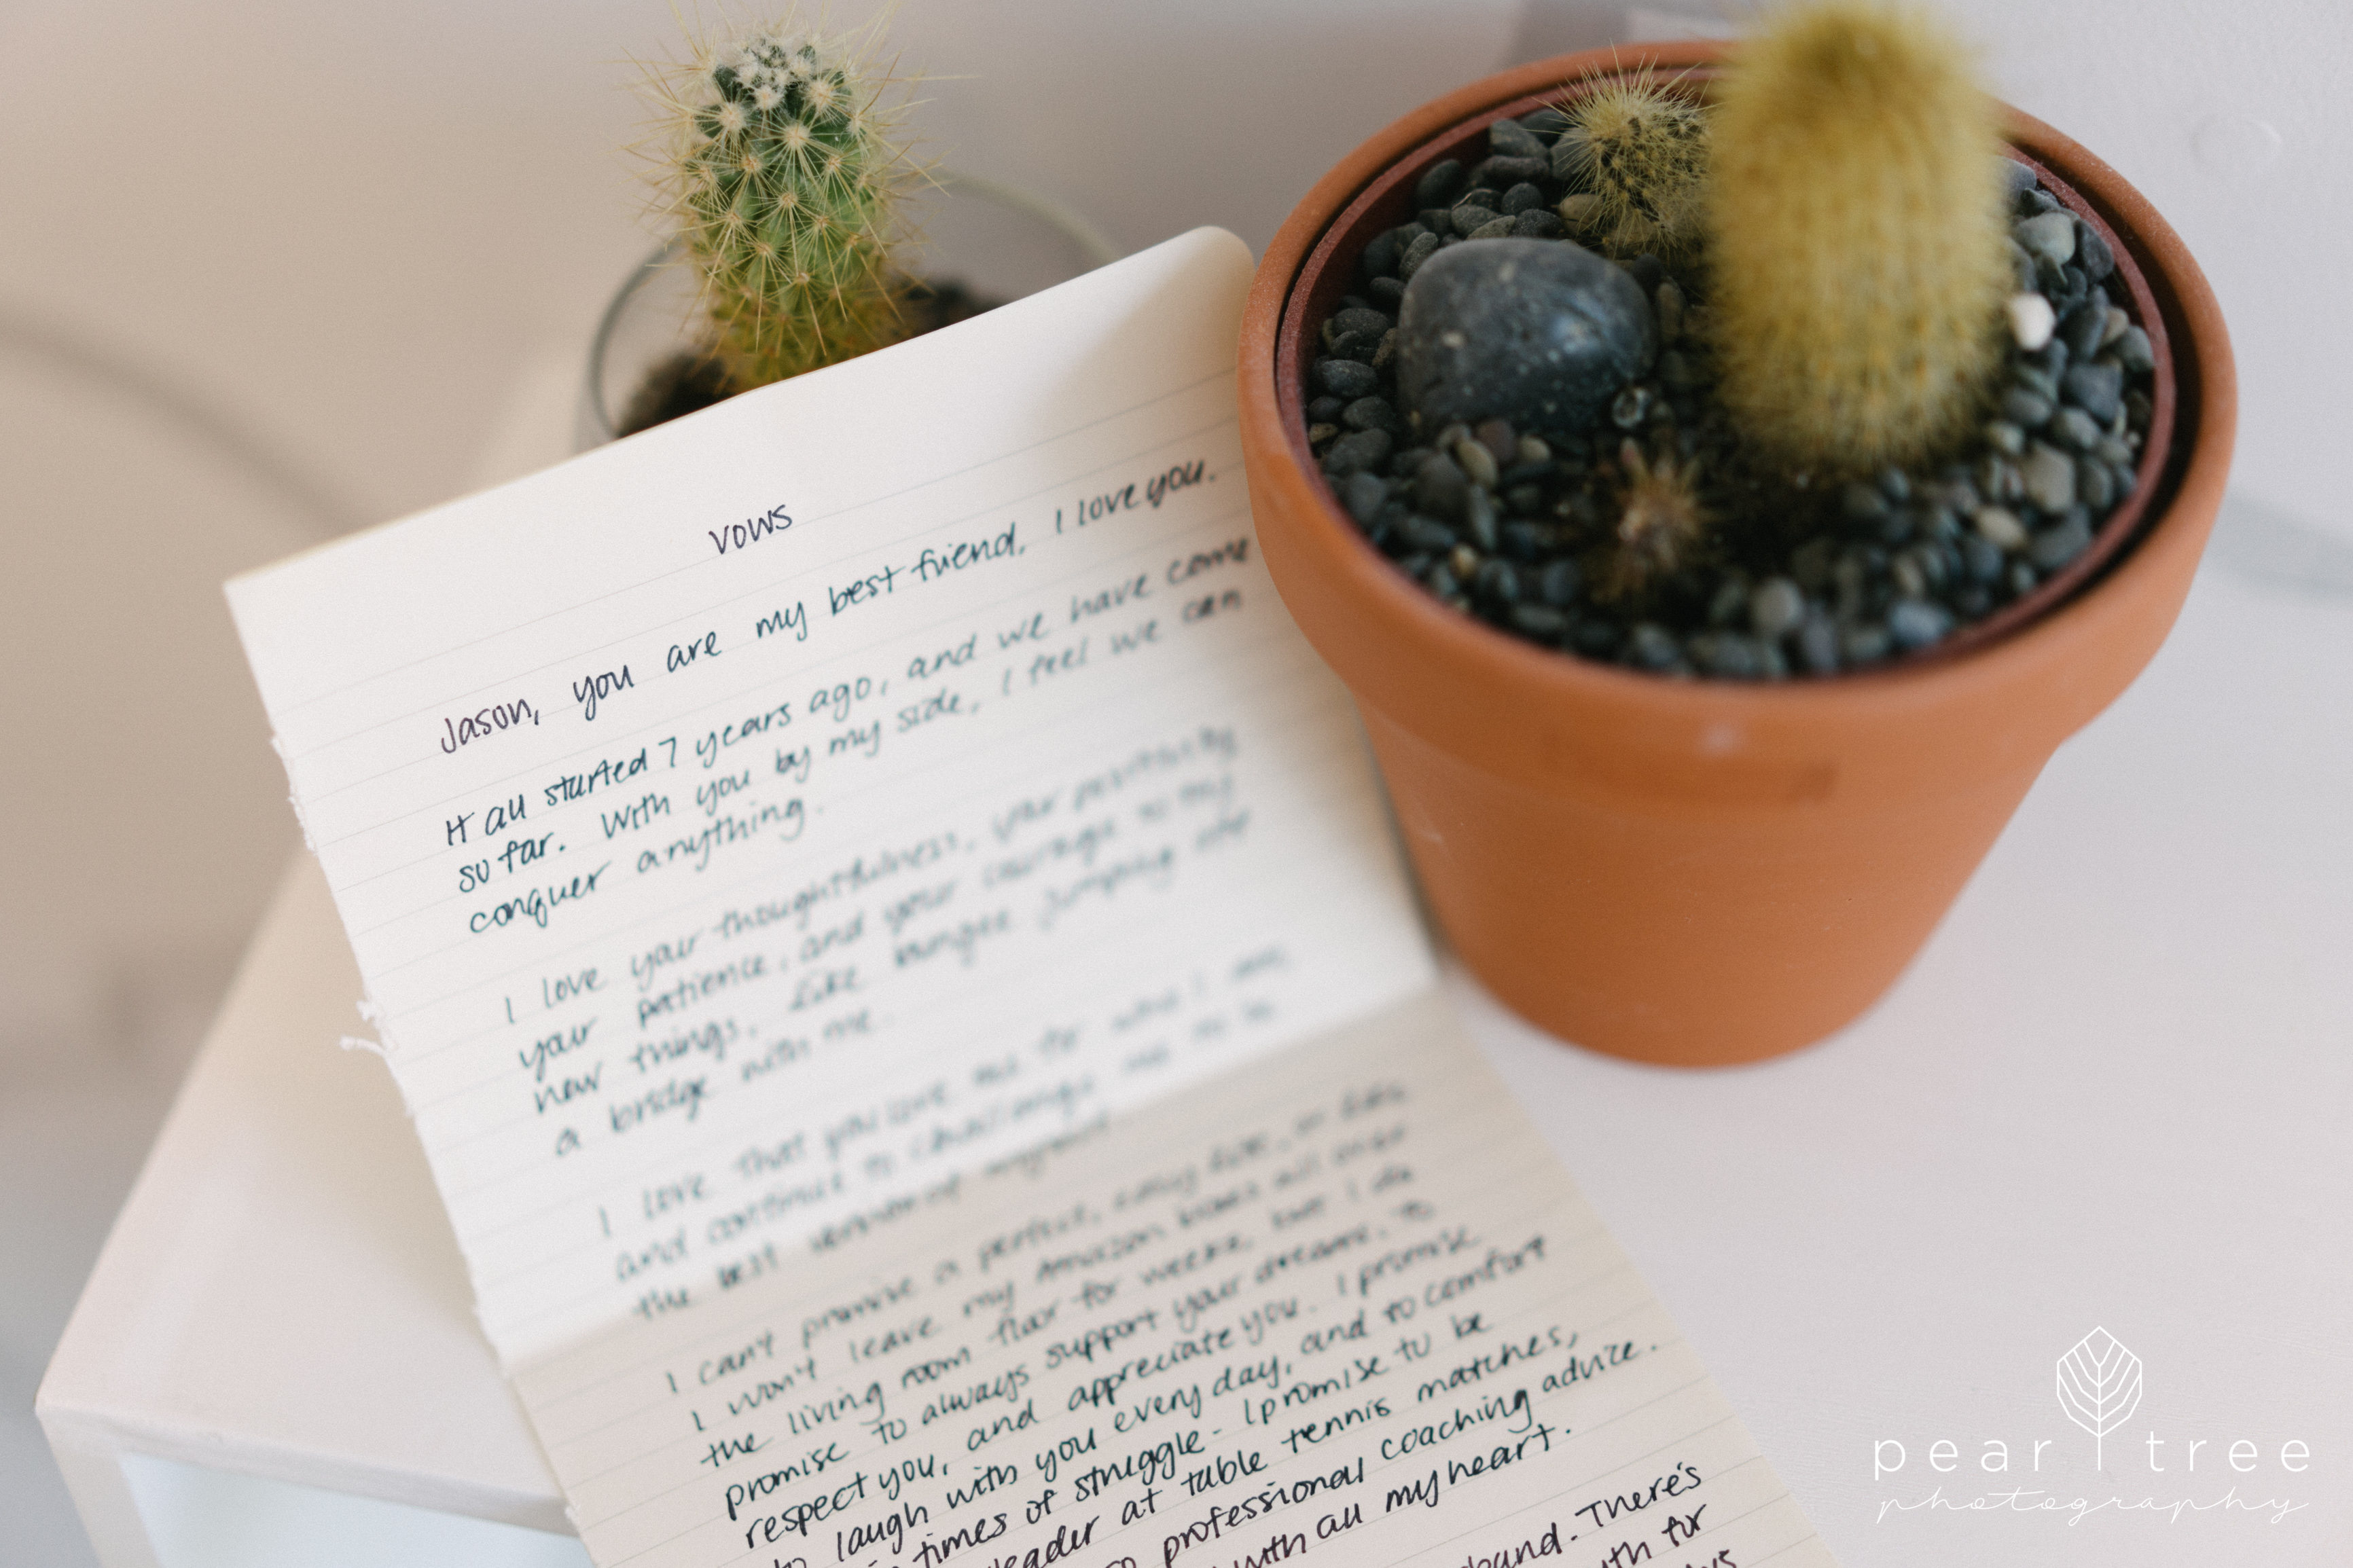 vows
Jason, you are my best friend. I love you.
It all started 7 years ago, and we have come
so far. With you by my side, I feel we can
conquer anything.
I love your thoughtfulness, your positivity
your patience, and your courage to try
new things. Like bungee jumping off
a bridge with me.
I love that you love me for who I am,
and continue to challenge me to be
the best version of myself
I can't promise a perfect, easy life, or that
I won't leave my Amazon boxes all over
the living room floor for weeks, but I do
promise to always support your dreams. To
respect you, and appreciate you. I promise
to laugh with you every day, and to comfort
times of struggle. I promise to be
leader at table tennis matches,
professional coaching advice.
with all my heart.
There's
for
pear tree
photography